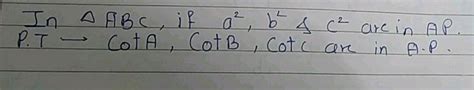 In △ ABC, if a², b² & c² are in AP.
P.T → CotA, CotB, Cotc are in A.P.